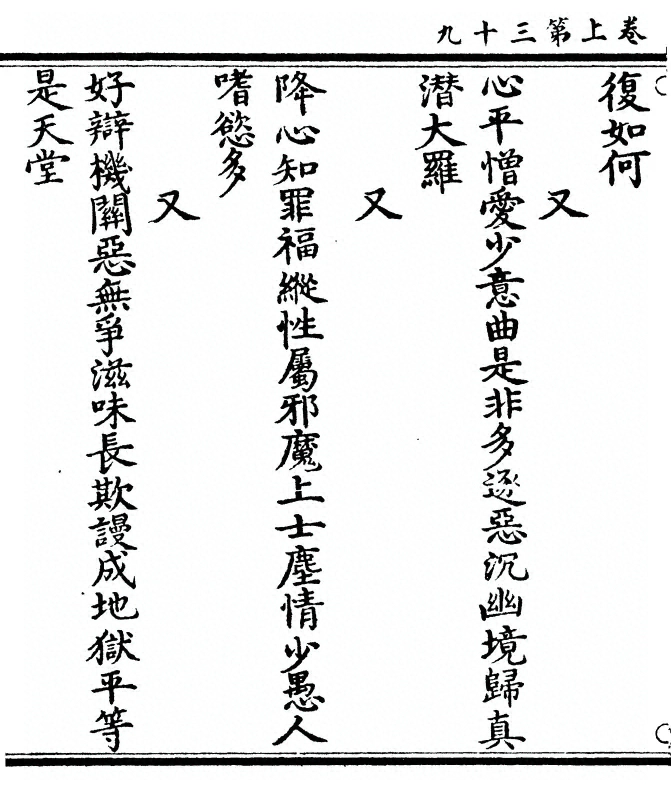 卷上第三十九
復如何
又
心平憎愛少意曲是非多逐惡沉幽境歸真
潛大羅
又
降心知罪福縱性屬邪魔上士塵情少愚人
嗜慾多
又
好辯機關惡無爭滋味長欺謾成地獄平等
是天堂